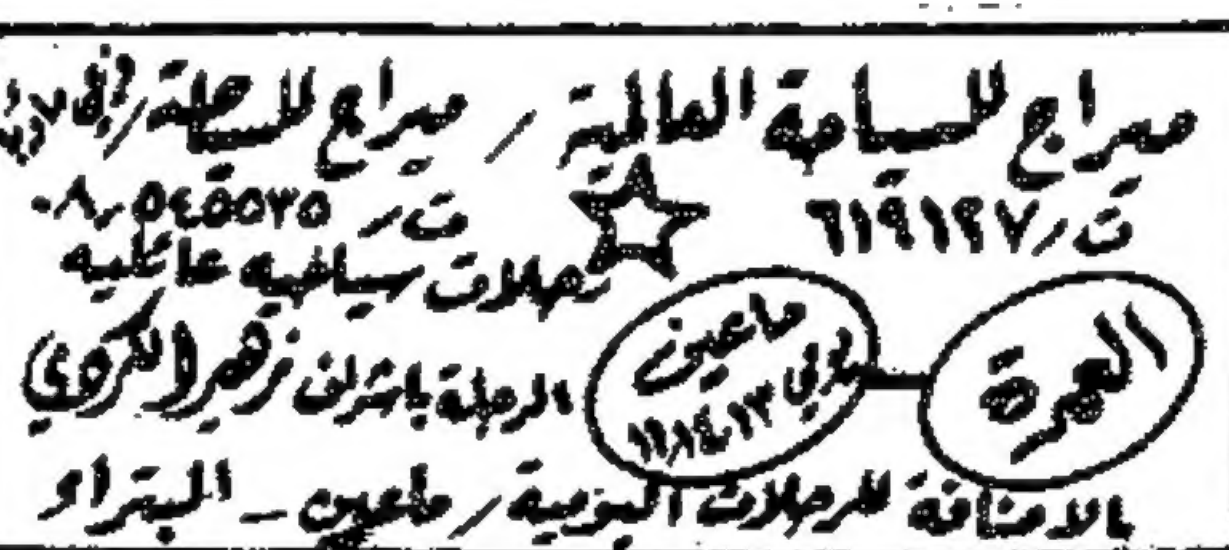 ميراج للسياحة العالمية / ميراج للسياحة /
ت/ ٦١٩١٢٧
ت/ ٥٤٥٥٣٥ ٠٨
رحلات سياحيه عائليه
العمرة
ماعين
يومي ١٣
الرحلة باشراف زهير الكردي
بالاضافة للرحلات اليومية / ماعين - البتراء